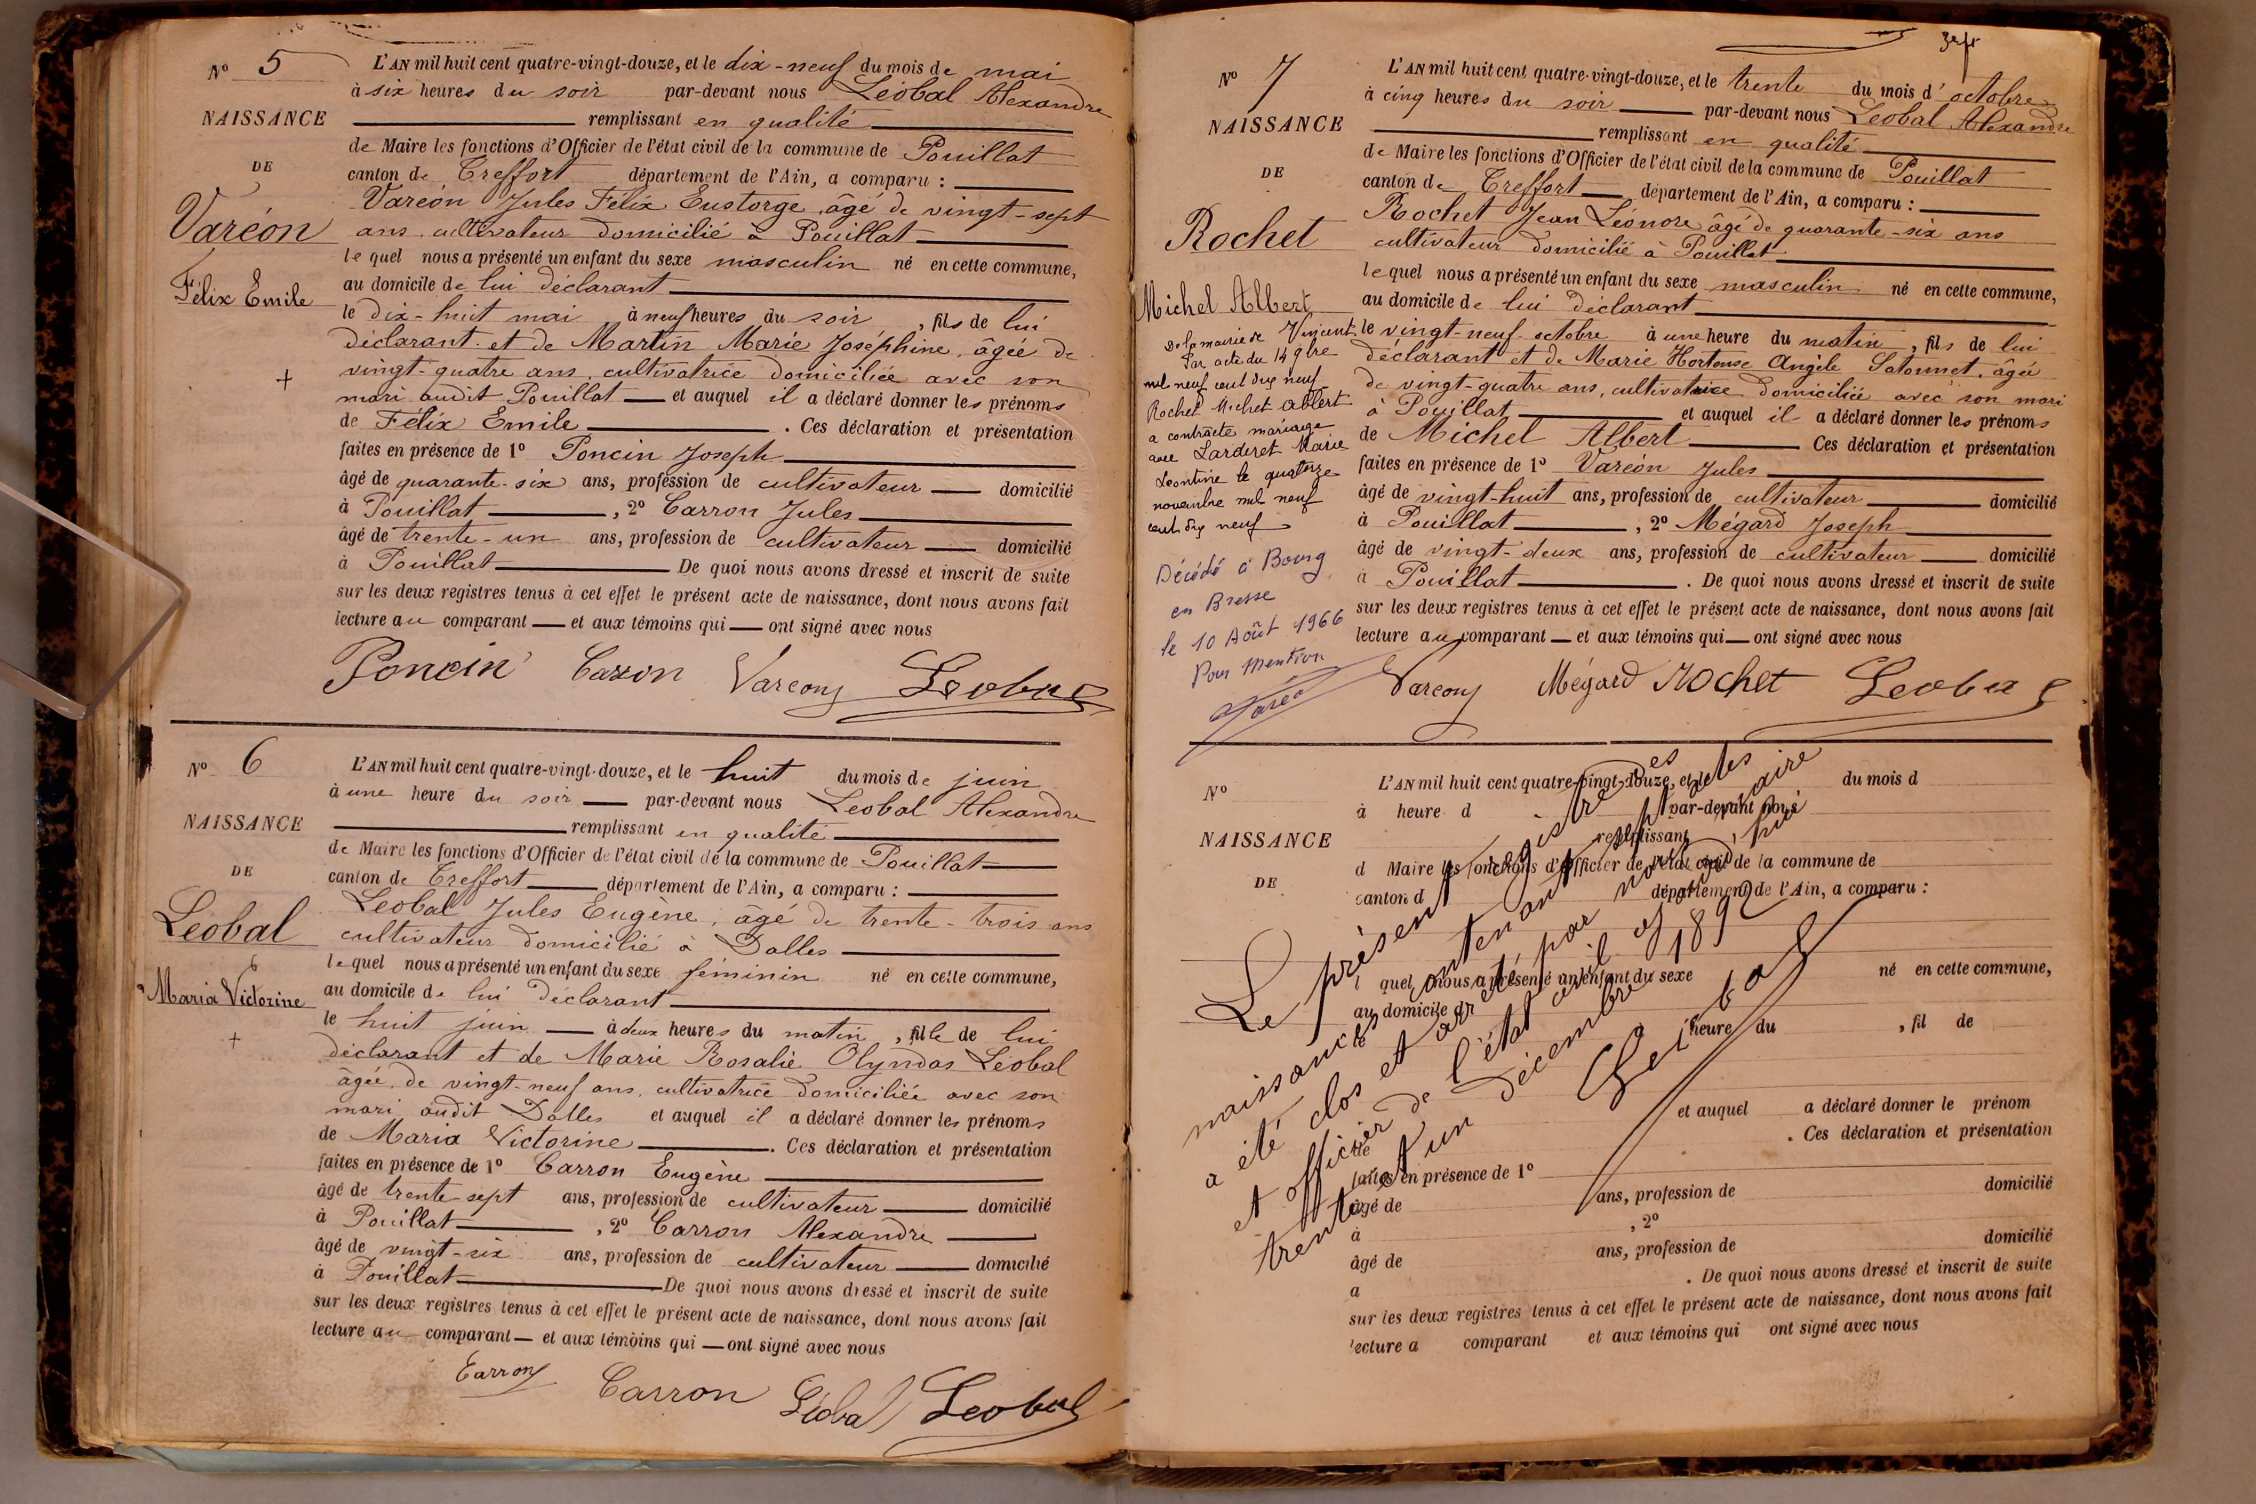 N° 5
NAISSANCE
DE
Varéon
Félix Emile
L'AN mil huit cent quatre-vingt-douze, et le dix-neuf du mois de mai
à six heures du soir par-devant nous Léobal Alexandre
remplissant en qualité
de Maire les fonctions d'Officier de l'état civil de la commune de Pouillat
canton de Treffort département de l'Ain, a comparu :
Varéon Jules Félix Eustorge, âgé de vingt-sept
ans, cultivateur domicilié à Pouillat
lequel nous a présenté un enfant du sexe masculin né en cette commune,
au domicile de lui déclarant
le dix-huit mai à neuf heures du soir, fils de lui
déclarant et de Martin Marie Joséphine, âgée de
vingt-quatre ans, cultivatrice domiciliée avec son
mari audit Pouillat et auquel il a déclaré donner les prénoms
de Félix Emile. Ces déclaration et présentation
faites en présence de 1° Poncin Joseph
âgé de quarante-six ans, profession de cultivateur domicilié
à Pouillat, 2° Carron Jules
âgé de trente-un ans, profession de cultivateur domicilié
à Pouillat De quoi nous avons dressé et inscrit de suite
sur les deux registres tenus à cet effet le présent acte de naissance, dont nous avons fait
lecture au comparant et aux témoins qui ont signé avec nous
Poncin Carron Vareon Leobal
N° 6
NAISSANCE
DE
Léobal
Maria Victorine
L'AN mil huit cent quatre-vingt-douze, et le huit du mois de juin
à une heure du soir par-devant nous Léobal Alexandre
remplissant en qualité
de Maire les fonctions d'Officier de l'état civil de la commune de Pouillat
canton de Treffort département de l'Ain, a comparu :
Léobal Jules Eugène, âgé de trente-trois ans
cultivateur domicilié à Dalles
lequel nous a présenté un enfant du sexe féminin né en cette commune,
au domicile de lui déclarant
le huit juin à deux heures du matin, fille de lui
déclarant et de Marie Rosalie Olyndas Léobal
âgée de vingt-neuf ans, cultivatrice domiciliée avec son
mari audit Dalles et auquel il a déclaré donner les prénoms
de Maria Victorine. Ces déclaration et présentation
faites en présence de 1° Carron Eugène
âgé de trente sept ans, profession de cultivateur domicilié
à Pouillat, 2° Carron Alexandre
âgé de vingt-six ans, profession de cultivateur domicilié
à Pouillat De quoi nous avons dressé et inscrit de suite
sur les deux registres tenus à cet effet le présent acte de naissance, dont nous avons fait
lecture au comparant et aux témoins qui ont signé avec nous
Carron Carron Léobal Leobal
N° 7
NAISSANCE
DE
Rochet
Michel Albert
De la mairie de Vincent
Par acte du 14 9bre
mil neuf cent dix neuf
Rochet Michel Albert
a contracté mariage
avec Larderet Marie
Leontine le quatorze
novembre mil neuf
cent dix neuf
Décédé à Bourg
en Bresse
le 10 Août 1966
Pour mention
L'AN mil huit cent quatre-vingt-douze, et le trente du mois d'octobre
à cinq heures du soir par-devant nous Léobal Alexandre
remplissant en qualité
de Maire les fonctions d'Officier de l'état civil de la commune de Pouillat
canton de Treffort département de l'Ain, a comparu :
Rochet Jean Léonore âgé de quarante-six ans
cultivateur domicilié à Pouillat
lequel nous a présenté un enfant du sexe masculin né en cette commune,
au domicile de lui déclarant
le vingt-neuf octobre à une heure du matin, fils de lui
déclarant et de Marie Hortense Angèle Satonnet, âgée
de vingt-quatre ans, cultivatrice domiciliée avec son mari
à Pouillat et auquel il a déclaré donner les prénoms
de Michel Albert Ces déclaration et présentation
faites en présence de 1° Varéon Jules
âgé de vingt-huit ans, profession de cultivateur domicilié
à Pouillat, 2° Mégard Joseph
âgé de vingt-deux ans, profession de cultivateur domicilié
à Pouillat. De quoi nous avons dressé et inscrit de suite
sur les deux registres tenus à cet effet le présent acte de naissance, dont nous avons fait
lecture au comparant et aux témoins qui ont signé avec nous
Vareon Mégard Rochet Leobal
N°
NAISSANCE
DE
L'AN mil huit cent quatre-vingt-douze, et le du mois d
à heure d par-devant nous
remplissant
d Maire les fonctions d'Officier de l'état civil de la commune de
canton d département de l'Ain, a comparu :
quel nous a présenté un enfant du sexe né en cette commune,
au domicile d
le à heure du , fil de
et auquel a déclaré donner le prénom
de . Ces déclaration et présentation
faites en présence de 1°
âgé de ans, profession de domicilié
à , 2°
âgé de ans, profession de domicilié
à . De quoi nous avons dressé et inscrit de suite
sur les deux registres tenus à cet effet le présent acte de naissance, dont nous avons fait
lecture a comparant et aux témoins qui ont signé avec nous
Le présent registre des
naissances contenant sept actes
a été clos et arrêté par nous maire
et officier de l'état civil aujourd'hui
trente et un décembre 1892
Leobal